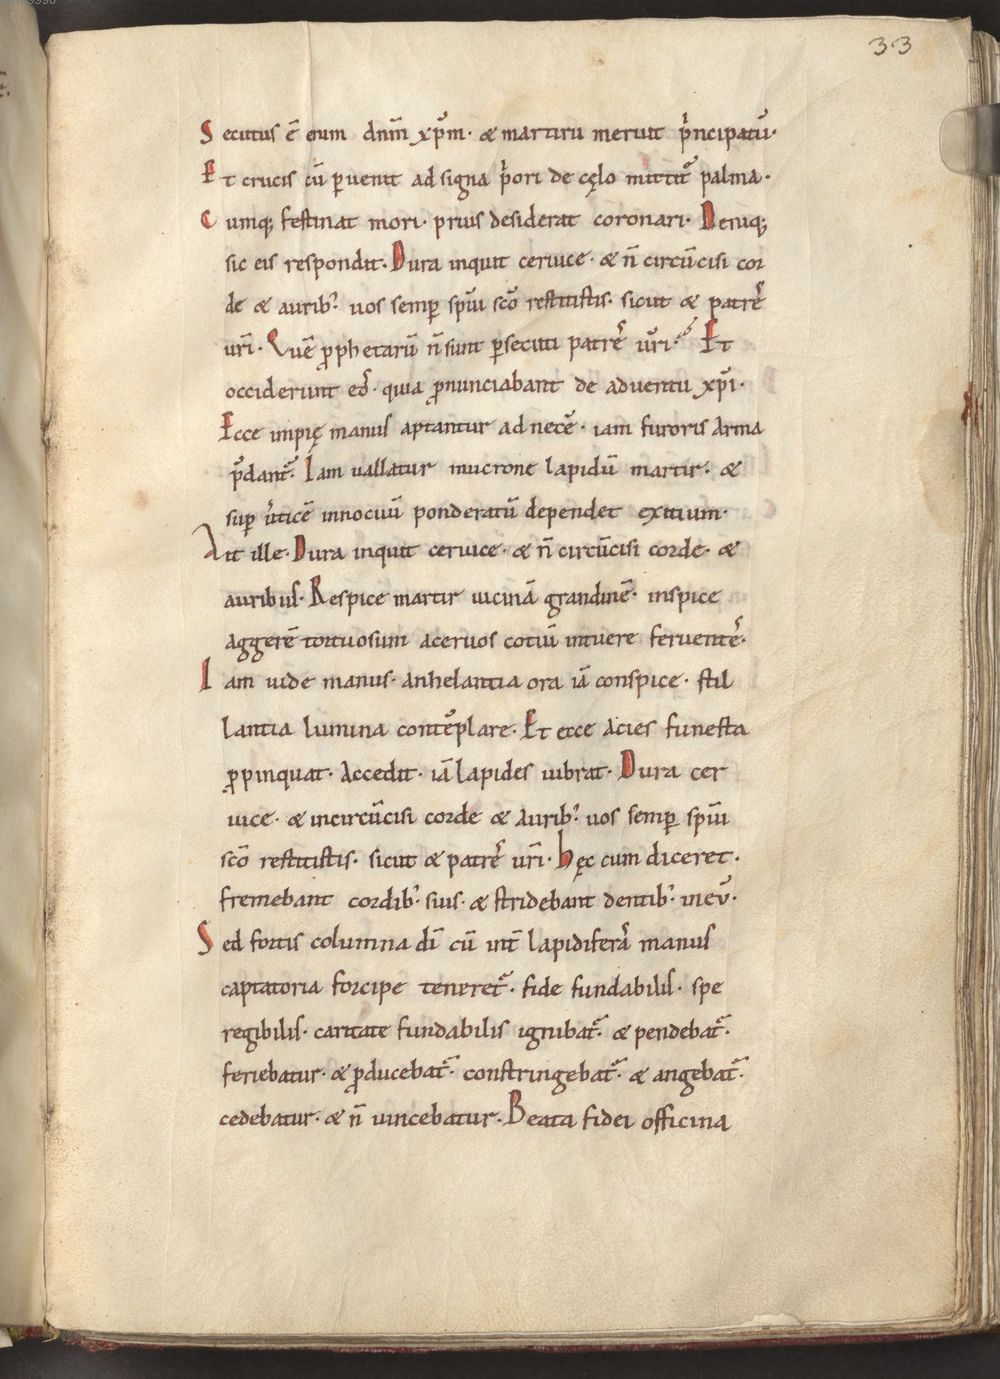 33
Secutus ē enim dn̄m xp̄m· & martirii meruit p̍ncipatū·
Et crucis cū puenit ad signa p̍ori de cęlo mittit᷑ palma·
Cumq; festinat mori· prius desiderat coronari· Deniq;
sic eis respondit· Dura inquit ceruice· & n̄ circūcisi cor
de & aurib; uos semꝑ sp̄ui sc̄o restitistis· sicut & patrē
ur̄i· Quē ꝓphetarū n̄ sunt ꝑsecuti patrē ur̄i· Et
occiderunt eos· quia ꝓnunciabant de aduentu xp̄i·
Ecce impię manus aptantur ad necē· iam furoris arma
p̄dant᷑· Iam uallatur mucrone lapidū martir· &
suꝑ u̍ticē innocuū ponderatū dependet exitium·
Ait ille· Dura inquit ceruice· & n̄ circūcisi corde· &
auribus· Respice martir uicinā grandinē· inspice
aggerē tortuosum aceruos cotiū intuere feruentes·
Iam uide manus· anhelantia ora iā conspice· stil
lantia lumina contēplare· Et ecce acies funesta
ꝓpinquat· Accedit· iā lapides uibrat· Dura cer
uice· & incircūcisi corde & aurib; uos semꝑ sp̄ui
sc̄o restitistis· sicut & patrē ur̄i· hęc cum diceret·
fremebant cordib; suis· & stridebant dentib; in eū·
Sed fortis columna dī cū int̄ lapidiferā manus
captatoria forcipe teneret᷑· fide fundabilis· spe
regibilis· caritate fundabilis ignibat᷑· & pendebat᷑·
feriebatur· & ꝓducebat᷑· constringebat᷑· & angebat᷑·
cedebatur· & n̄ uincebatur· Beata fidei officina